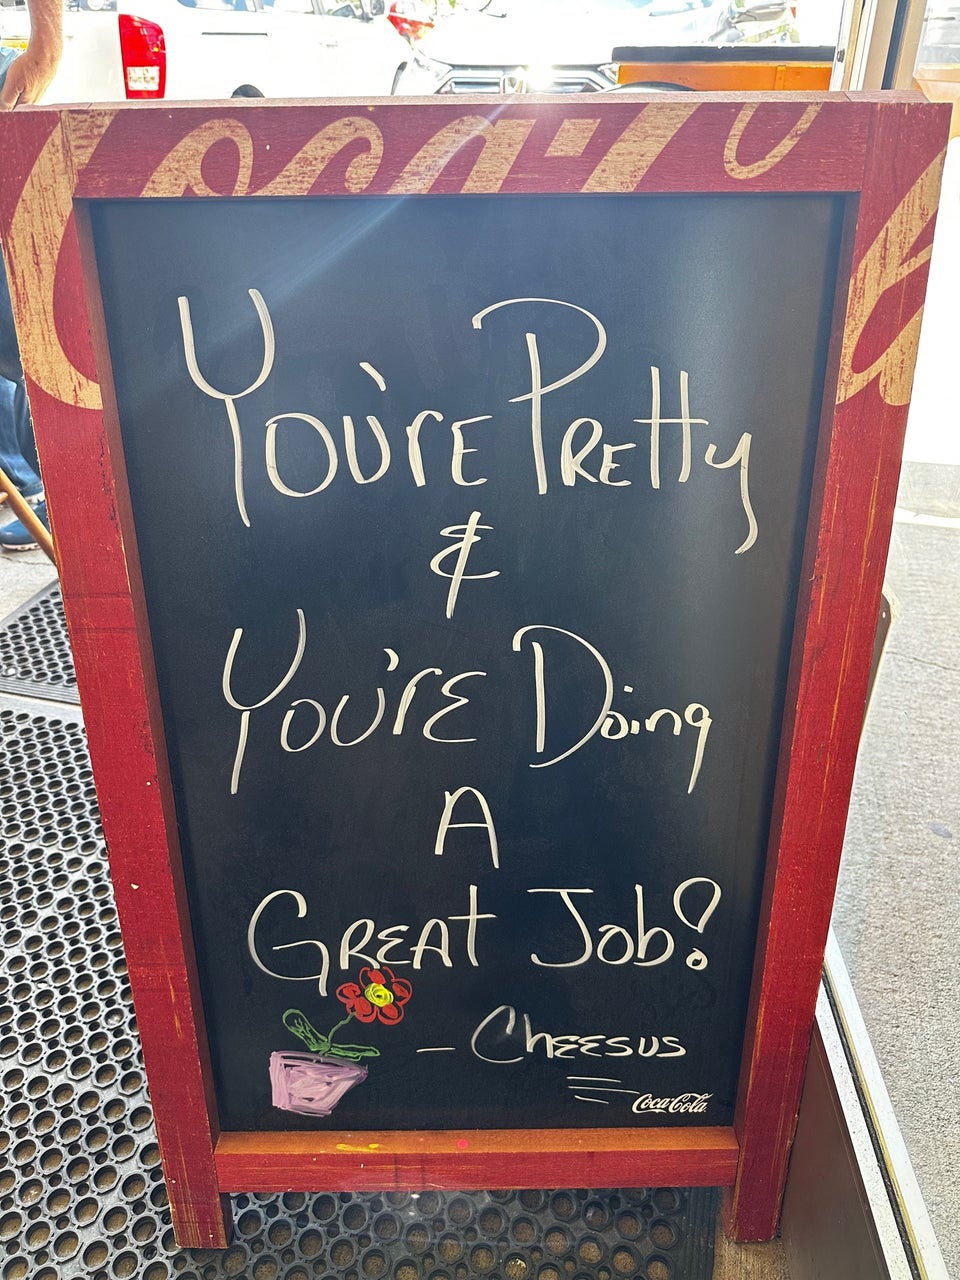 Coca-Cola
You're Pretty
&
You're Doing
A
Great Job!
- Cheesus
Coca-Cola